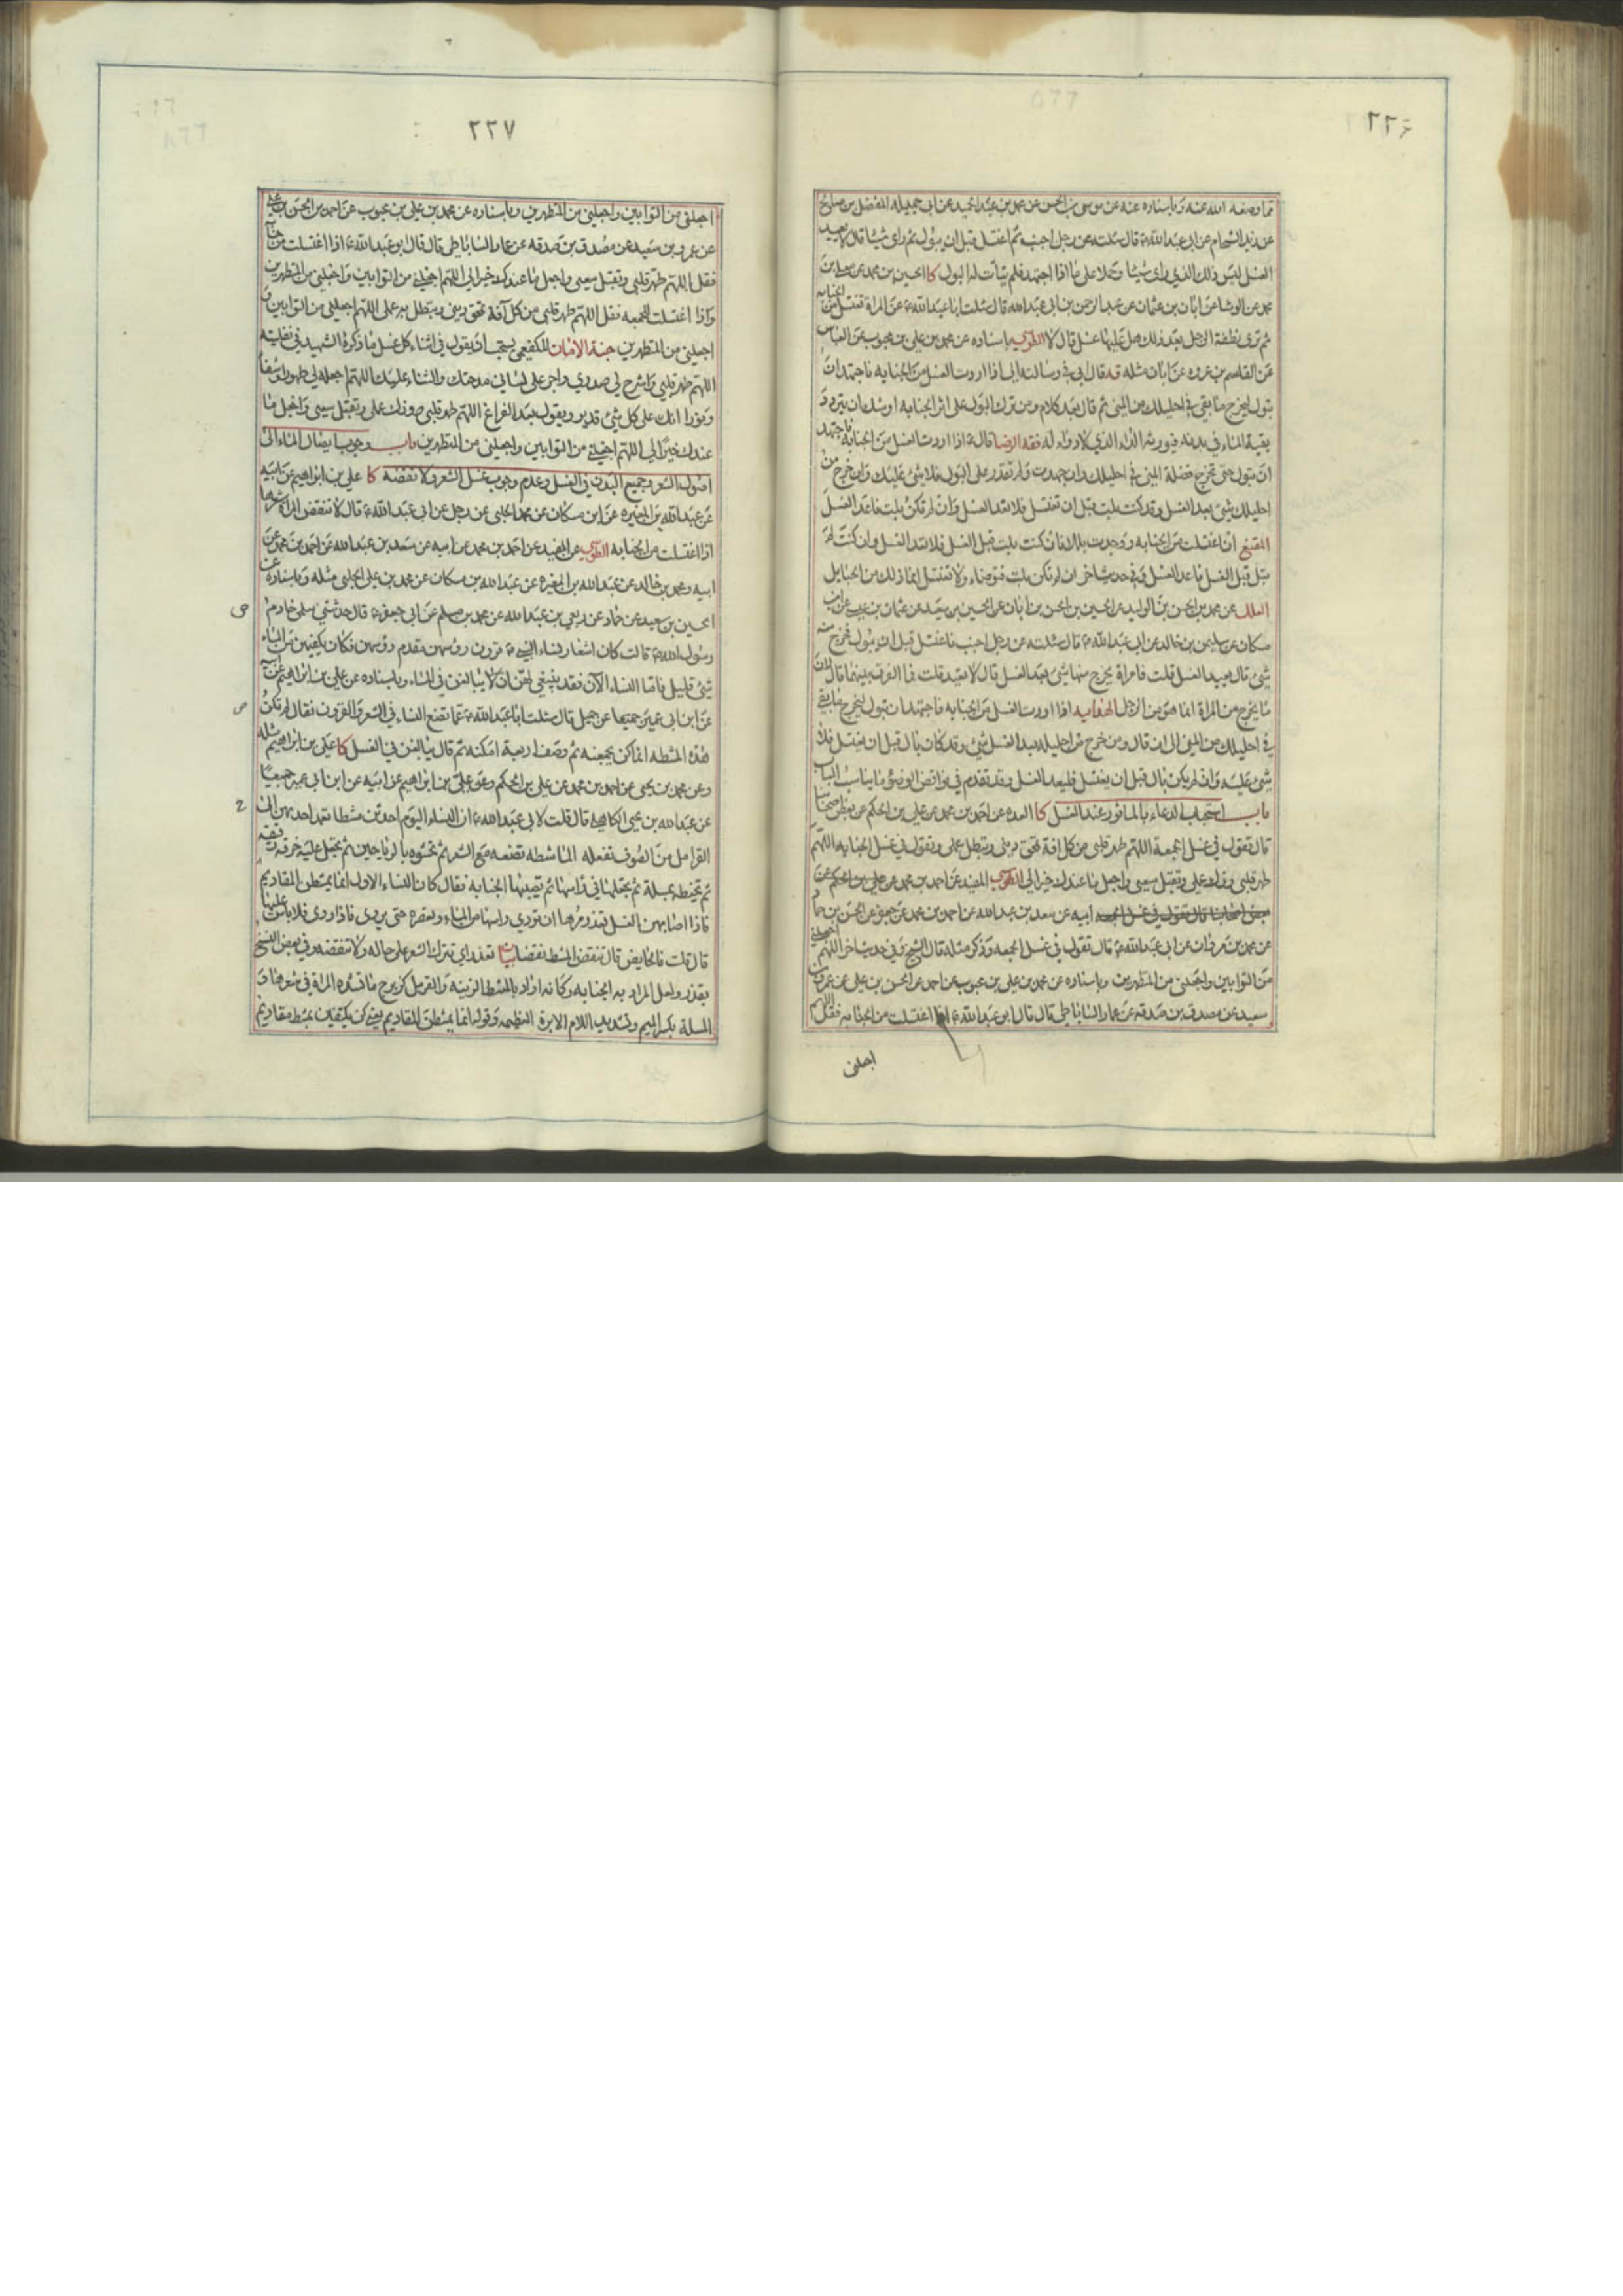 ٢٢٦
مما وصفه الله عنه وباسناده عنه عن موسى بن الحسن عن محمد بن عبد الحميد عن ابى جميله المفضل بن صالح
عن زيد الشحام عن ابى عبد الله ع قال سئلته عن رجل اجنب ثم اغتسل قبل ان يبول ثم راى شيئا قال لا يعيد
الغسل ليس ذلك الذي راى شيئا وحملا على ما اذا اجتهد فلم يتأت له البول كا الحسين بن محمد عن معلى بن
محمد عن الوشا عن ابان بن عثمان عن عبد الرحمن بن ابى عبد الله قال سئلت ابا عبد الله ع عن المراة تغتسل من الجنابه
ثم ترى نطفة الرجل بعد ذلك هل عليها غسل قال لا الطوسي باسناده عن محمد بن علي بن محبوب عن العباس
عن القاسم بن عروه عن ابان مثله قد قال ابى في رسالته الى اذا اردت الغسل من الجنابه فاجتهد ان
تبول ليخرج ما بقي في احليلك من المني ثم قال بعد كلام ومن ترك البول على اثر الجنابه اوشك ان يتردد
بقية الماء في بدنه فيورثه الداء الذي لا دواء له فقه الرضا قال ع اذا اردت الغسل من الجنابه فاجتهد
ان تبول حتى تخرج فضلة المني في احليلك وان جهدت ولم تقدر على البول فلا شئ عليك وان خرج من
احليلك شئ بعد الغسل وقد كنت بلت قبل ان تغتسل فلا تعد الغسل وان لم تكن بلت فاعد الغسل
المقنع ان اغتسلت من الجنابه ووجدت بللا فان كنت بلت قبل الغسل فلا تعد الغسل وان كنت لم
تبل قبل الغسل فاعد الغسل وفي حديث اخر ان لم تكن بلت فتوضاء ولا تغتسل انما ذلك من الحبايل
العلل عن محمد بن الحسن بن الوليد عن الحسين بن الحسن بن ابان عن الحسين بن سعيد عن عثمان بن عيسى عن ابن
مسكان عن سليمن بن خالد عن ابى عبد الله ع قال سئلته عن رجل اجنب فاغتسل قبل ان يبول فخرج منه
شئ قال يعيد الغسل قلت فامراة يخرج منها شئ بعد الغسل قال لا تعيد قلت فما الفرق بينهما قال لان
ما يخرج من المراة انما هو من الرجل الهدايه اذا اردت الغسل من الجنابه فاجتهد ان تبول ليخرج ما بقي
في احليلك من المني الى ان قال ومن خرج من احليله بعد الغسل شئ وقد كان بال قبل ان يغتسل فلا
شئ عليه وان لم يكن بال قبل ان يغتسل فليعد الغسل وقد تقدم في نواقض الوضوء ما يناسب الباب
باب استحباب الدعاء بالماثور عند الغسل كا العده عن احمد بن محمد عن علي بن الحكم عن بعض اصحابنا
قال تقول في غسل الجمعة اللهم طهر قلبى من كل افة تمحق دينى وتبطل عملى وتقول في غسل الجنابه اللهم
طهر قلبى وزك عملى وتقبل سعيى واجعل ما عندك خيرا لي الطوسي المفيد عن احمد بن محمد عن علي بن الحكم عن
بعض اصحابنا قال تقول في غسل الجمعه ابيه عن سعد بن عبد الله عن احمد بن محمد عن جعفر عن الحسن بن حماد
عن محمد بن مروان عن ابى عبد الله ع قال تقول في غسل الجمعه وذكر مثله قال الشيخ وفي حديث اخر اللهم اجعلني
من التوابين واجعلني من المتطهرين وباسناده عن محمد بن علي بن محبوب عن احمد عن الحسن بن علي عن عمرو بن
سعيد عن مصدق بن صدقه عن عمار الساباطى قال قال ابو عبد الله ع اذا اغتسلت من الجنابه فقل اللهم
اجعلنى
٢٢٧
اجعلنى من التوابين واجعلني من المتطهرين وباسناده عن محمد بن علي بن محبوب عن احمد بن الحسن بن علي
عن عمرو بن سعيد عن مصدق بن صدقه عن عمار الساباطى قال قال ابو عبد الله ع اذا اغتسلت من جنابة
فقل اللهم طهر قلبى وتقبل سعيى واجعل ما عندك خيرا لي اللهم اجعلني من التوابين واجعلني من المتطهرين
واذا اغتسلت للجمعه فقل اللهم طهر قلبى من كل آفة تمحق دينى وتبطل به عملى اللهم اجعلني من التوابين و
اجعلني من المتطهرين جنة الامان للكفعمي يستحب ان يقول في اثناء كل غسل ما ذكره الشهيد في نفليته
اللهم طهر قلبي واشرح لي صدري واجر على لسانى مدحتك والثناء عليك اللهم اجعله لي طهورا وشفاء
ونورا انك على كل شئ قدير ويقول بعد الفراغ اللهم طهر قلبى وزك عملى وتقبل سعيى واجعل ما
عندك خيرا لي اللهم اجعلني من التوابين واجعلني من المتطهرين باب وجوب ايصال الماء الى
اصول الشعر وجميع البدن في الغسل وعدم وجوب غسل الشعر ولا نقضه كا علي بن ابراهيم عن ابيه
عن عبد الله بن المغيره عن ابن مسكان عن محمد الحلبى عن رجل عن ابى عبد الله ع قال لا تنقض المراة شعرها
اذا اغتسلت من الجنابه الطوسي عن المفيد عن احمد بن محمد عن ابيه عن سعد بن عبد الله عن احمد بن محمد عن
ابيه ومحمد بن خالد عن عبد الله بن المغيره عن عبد الله بن مسكان عن محمد بن علي الحلبى مثله وباسناده عن
الحسين بن سعيد عن حماد عن ربعي بن عبد الله عن محمد بن مسلم عن ابى جعفر ع قال حدثتني سلمى خادم
رسول الله ص قالت كان اشعار نساء النبي ص قرون رؤسهن مقدم رؤسهن فكان يكفيهن من الماء
شئ قليل فاما النساء الآن فقد ينبغي لهن ان يبالغن في الماء وباسناده عن علي بن ابراهيم عن ابيه
عن ابن ابى عمير عن جميل قال سئلت ابا عبد الله ع عما تصنع النساء في الشعر والقرون فقال لم تكن
هذه المشطه انما كن يجمعنه ثم وصف اربعة امكنه ثم قال يبالغن في الغسل كا علي بن ابراهيم مثله
وعن محمد بن يحيى عن احمد بن محمد عن علي بن الحكم وعن علي بن ابراهيم عن ابيه عن ابن ابى عمير جميعا
عن عبد الله بن يحيى الكاهلى قال قلت لابى عبد الله ع ان النساء اليوم احدثن مشطا تعمد احديهن الى
القرامل من الصوف تفعله الماشطه تصنعه مع الشعر ثم تحشوه بالرياحين ثم يجعل عليه خرقه رقيقه
ثم تخيطه بمسلة ثم يجعلها في راسها ثم يصيبها الجنابه فقال كان النساء الاول انما يمتشطن المقاديم
فاذا اصابهن الغسل بقذر مرها ان تروي راسها من الماء وتعصره حتى يروى فاذا روى فلا باس عليها
قال قلت فالحايض قال تنقض المشط نقضا بيان تغذر اي تترك الشعر على حاله ولا تنقضه وفي بعض النسخ
بقذر ولعل المراد به الجنابه وكانه اراد بالمشط الزينه والقرمل كزبرج ما تشده المراة في شعرها و
المسلة بكسر الميم وتشديد اللام الابرة العظيمه وقوله انما يمتشطن المقاديم يعني كن يكتفين بمشط مقاديم